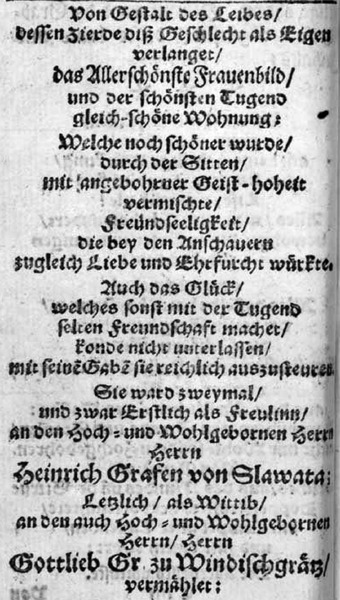 Von Gestalt des Leibes/
dessen Zierde diß Geschlecht als Eigen
verlanget/
das Allerschönste Frauenbild/
und der schönsten Tugend
gleich-schöne Wohnung:
Welche noch schöner wurde/
durch der Sitten/
mit angebohrner Geist-hoheit
vermischte/
Freündseeligkeit/
die bey den Anschauern
zugleich Liebe und Ehrfurcht würkte.
Auch das Glück/
welches sonst mit der Tugend
selten Freundschaft machet/
konde nicht unterlassen/
mit seinē Gabē sie reichlich auszusteuren
Sie ward zweymal/
und zwar Erstlich als Freulinn/
an den Hoch- und Wohlgebornen Herrn
Herrn
Heinrich Grafen von Slawata;
Letzlich/ als Wittib/
an den auch Hoch- und Wohlgebornen
Herrn/ Herrn
Gottlieb Gr. zu Windischgrätz/
vermählet: